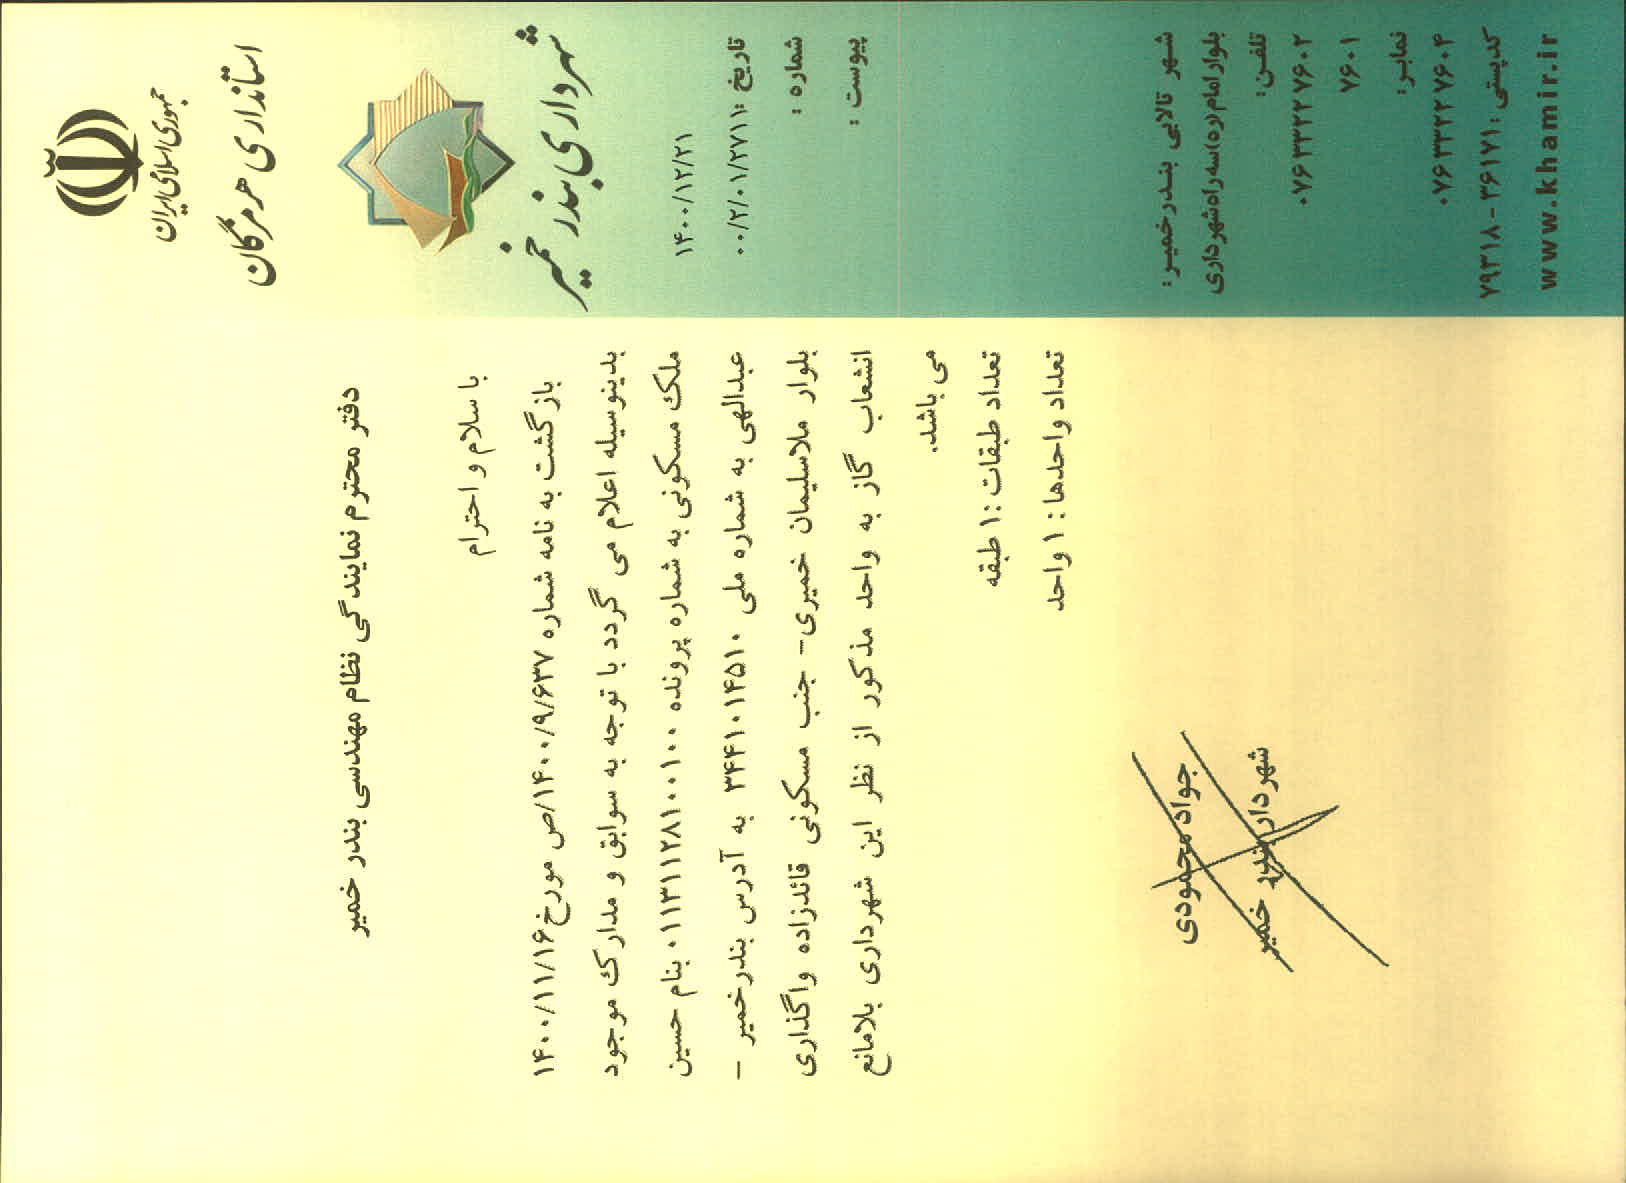 جمهوری اسلامی ایران
استانداری هرمزگان
شهرداری بندر خمیر
۱۴۰۰/۱۲/۲۱
تاریخ :۰۰/۲/۰۱/۲۷۱۱
شماره :
پیوست :
دفتر محترم نمایندگی نظام مهندسی بندر خمیر
با سلام و احترام
بازگشت به نامه شماره ۱۴۰۰/۹/۶۳۷/ص مورخ۱۴۰۰/۱۱/۱۶
بدینوسیله اعلام می گردد با توجه به سوابق و مدارک موجود
ملک مسکونی به شماره پرونده ۰۱۱۳۱۱۲۸۱۰۰۱۰۰ بنام حسین
عبدالهی به شماره ملی ۳۴۴۱۰۱۴۵۱۰ به آدرس بندرخمیر –
بلوار ملاسلیمان خمیری- جنب مسکونی قائدزاده واگذاری
انشعاب گاز به واحد مذکور از نظر این شهرداری بلامانع
می باشد.
تعداد طبقات :۱ طبقه
تعداد واحدها : ۱ واحد
جواد محمودی
شهردار بندر خمیر
شهر تالابی بندرخمیر:
بلوار امام(ره)سه راه شهرداری
تلفن:
۰۷۶۳۳۲۲۷۶۰۲
۷۶۰۱
نمابر:
۰۷۶۳۳۲۲۷۶۰۴
کدپستی :۳۶۱۷۱ - ۷۹۳۱۸
www.khamir.ir